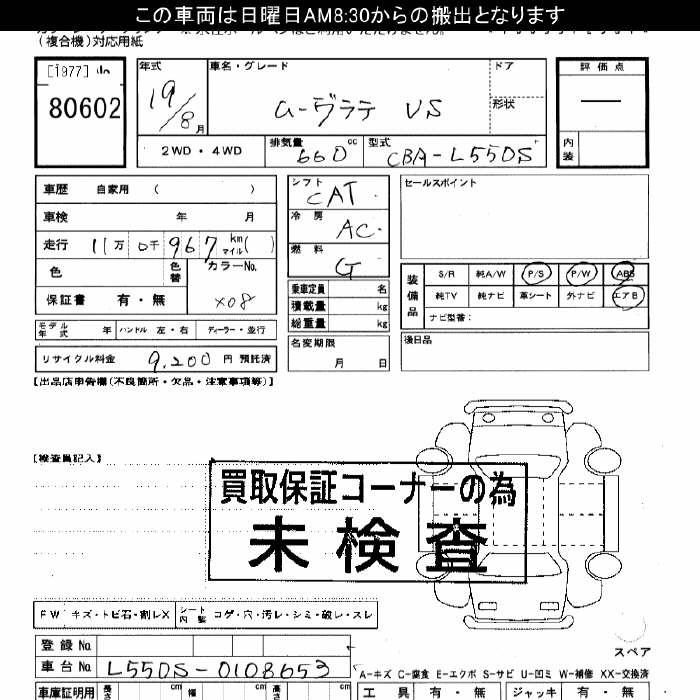 この車両は日曜日AM8:30からの搬出となります
(複合機)対応用紙
[1977]
80602
年式
19/8月
車名・グレード
ムーヴラテ VS
ドア
形状
評価点
内装
2WD・4WD
排気量 660 cc
型式 CBA-L550S
車歴 自家用 ( )
車検 年 月
走行 11万 0千 967 km マイル( )
色
色替
カラーNo. X08
保証書 有・無
モデル年式 年
ハンドル 左・右
ディーラー・並行
リサイクル料金 9,200 円 預託済
シフト CAT
冷房 AC
燃料 G
乗車定員 名
積載量 kg
総重量 kg
名変期限
月 日
セールスポイント
装備品
S/R 純A/W P/S P/W ABS
純TV 純ナビ 革シート 外ナビ エアB
ナビ型番:
後日品
【出品店申告欄(不良箇所・欠品・注意事項等)】
【検査員記入】
買取保証コーナーの為
未検査
FW キズ・トビ石・割レX
シート内装 コゲ・穴・汚レ・シミ・破レ・スレ
スペア
登録No.
車台No. L550S-0108653
A-キズ C-腐食 E-エクボ S-サビ U-凹ミ W-補修 XX-交換済
車庫証明用 長さ cm 幅 cm 高さ cm
工具 有・無 ジャッキ 有・無